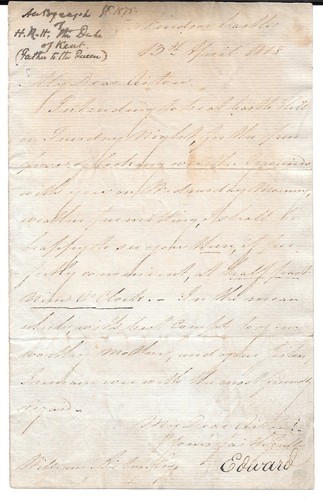 Autograph
of
H.R.H. The Duke
of Kent.
(Father to the Queen)
Windsor Castle
13th April 1818
My Dear Aiton,
Intending to be at Castle Hill
on Tuesday Night, for the pur
pose of looking over the grounds
with you on Wednesday Morning,
weather permitting, I shall be
happy to see you then, if per
fectly convenient, at half past
Nine o'Clock. - In the mean
while, with best Compts to your
worthy Mother, and
I remain ever with the most friendly
regard,
My Dear Aiton,
Yours
Edward
William